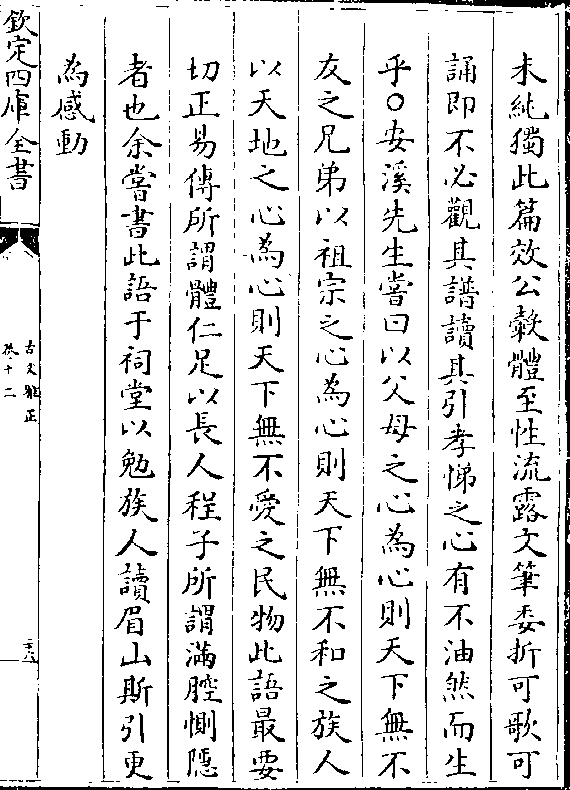 未純獨此篇效公穀體至性流露文筆委折可歌可
誦即不必觀其譜讀其引孝悌之心有不油然而生
乎○安溪先生嘗曰以父母之心為心則天下無不
友之兄弟以祖宗之心為心則天下無不和之族人
以天地之心為心則天下無不愛之民物此語最要
切正易傳所謂體仁足以長人程子所謂滿腔惻隱
者也余嘗書此語于祠堂以勉族人讀眉山斯引更
為感動
欽定四庫全書
古文雅正
卷十二